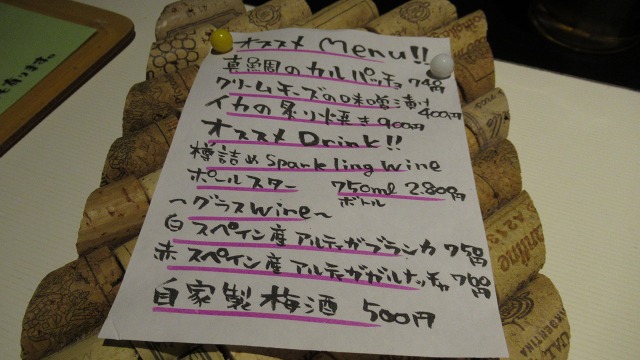 オススメ Menu!!
真鯛のカルパッチョ
クリームチーズの味噌漬け 400円
イカの炙り焼き 900円
オススメ Drink!!
樽詰め Sparkling wine
ポールスター 750ml 2.800円
ボトル
〜グラスwine〜
白 スペイン産 アルティガブランカ
赤 スペイン産 アルティガガルナッチャ 700円
自家製梅酒 500円